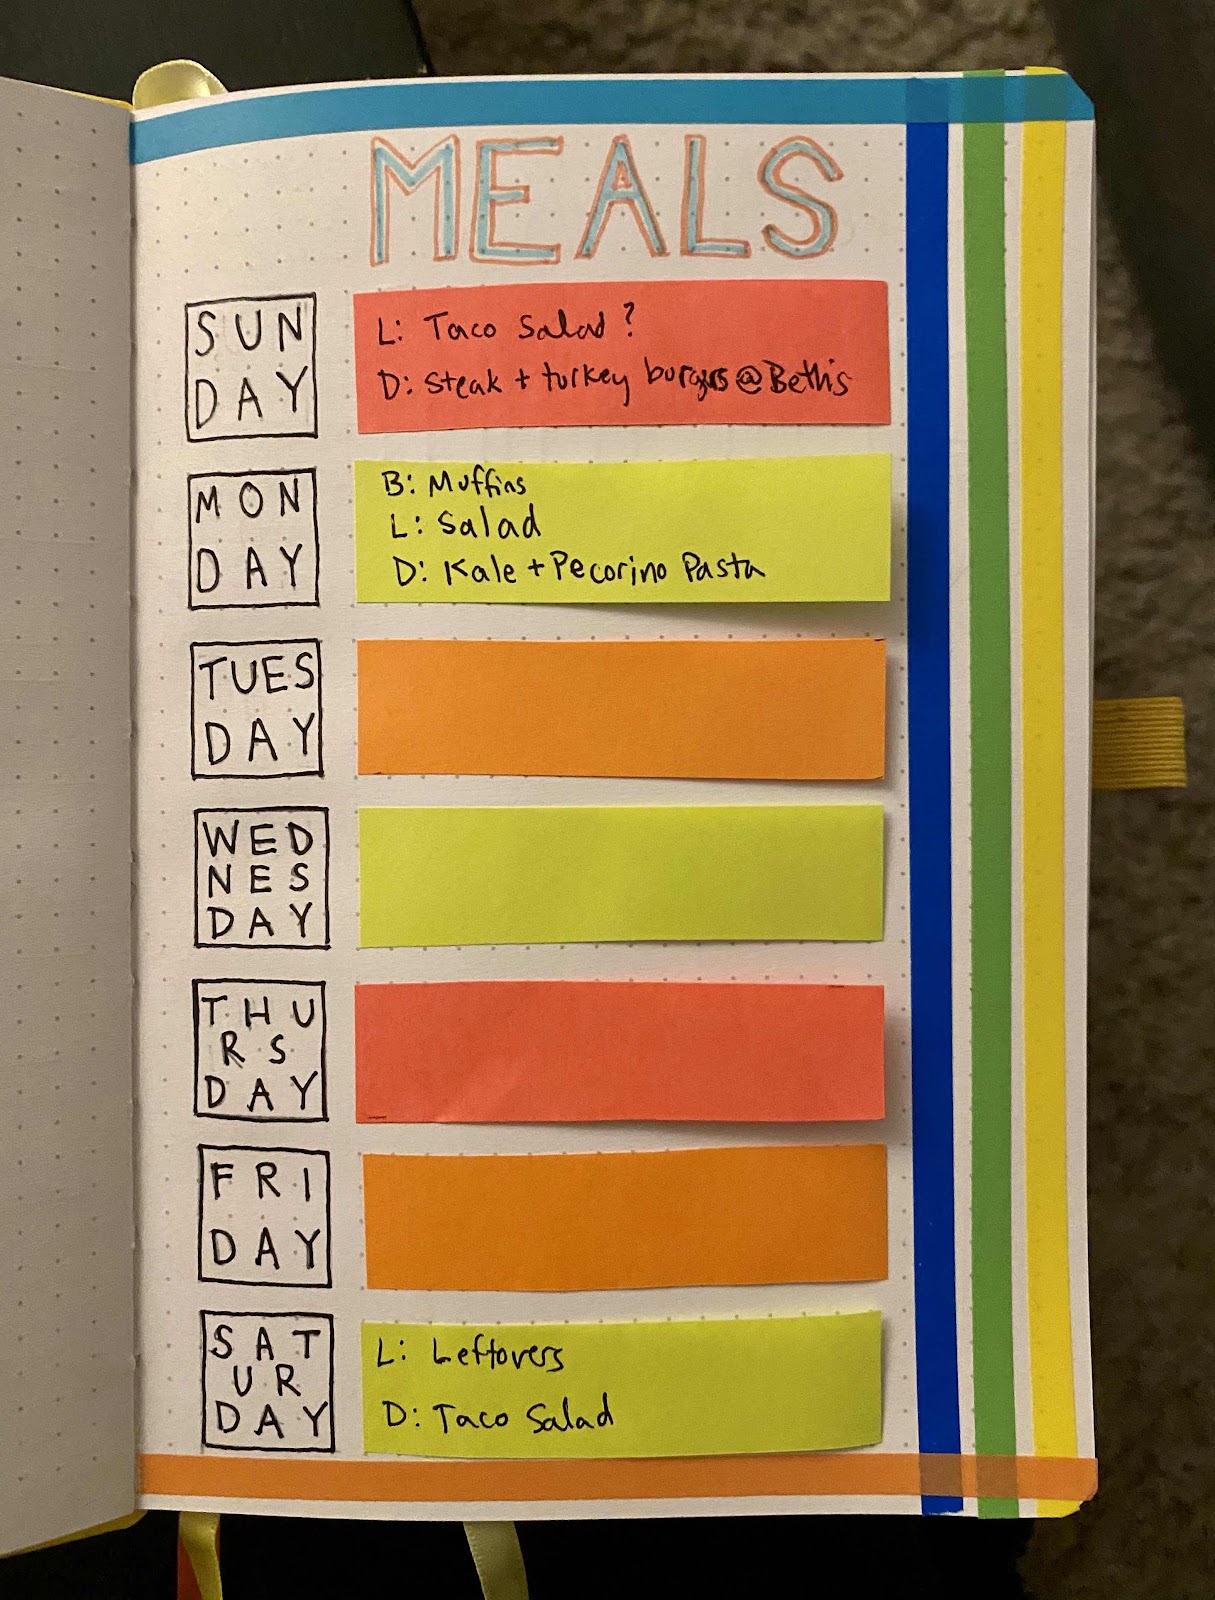 MEALS
SUN
DAY
L: Taco Salad?
D: Steak + turkey burgers @ Beth's
MON
DAY
B: Muffins
L: Salad
D: Kale + Pecorino Pasta
TUES
DAY
WED
NES
DAY
THU
RS
DAY
FRI
DAY
SAT
UR
DAY
L: Leftovers
D: Taco Salad